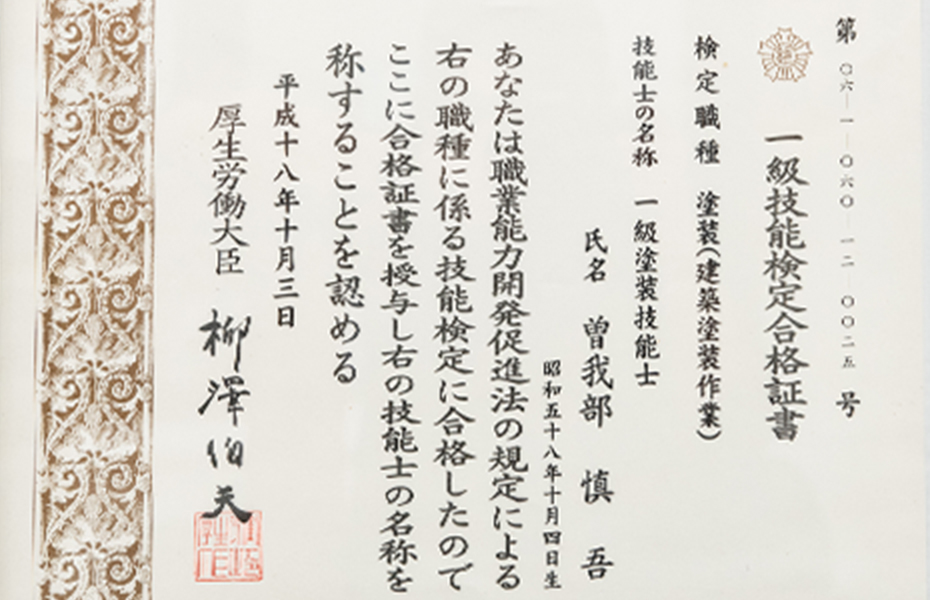 第〇六―一―〇六〇―一二―〇〇二五号
一級技能検定合格証書
検定職種 塗装(建築塗装作業)
技能士の名称 一級塗装技能士
氏名 曽我部 慎吾
昭和五十八年十月四日生
あなたは職業能力開発促進法の規定による
右の職種に係る技能検定に合格したので
ここに合格証書を授与し右の技能士の名称を
称することを認める
平成十八年十月三日
厚生労働大臣 柳澤伯夫